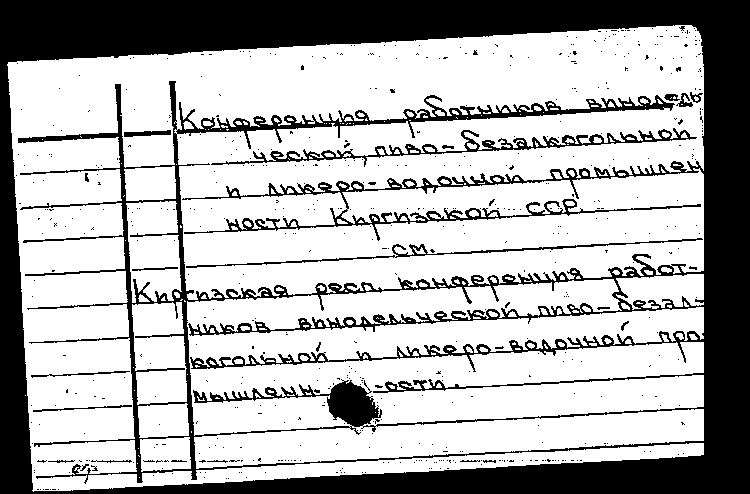 Конференция работников винодель
ческой, пиво-безалкогольной
и ликеро-водочной промышлен
ности Киргизской ССР.
см.
Киргизская респ. конференция работ-
ников винодельческой, пиво-безал-
когольной и ликеро-водочной про
мышленн- -ости.